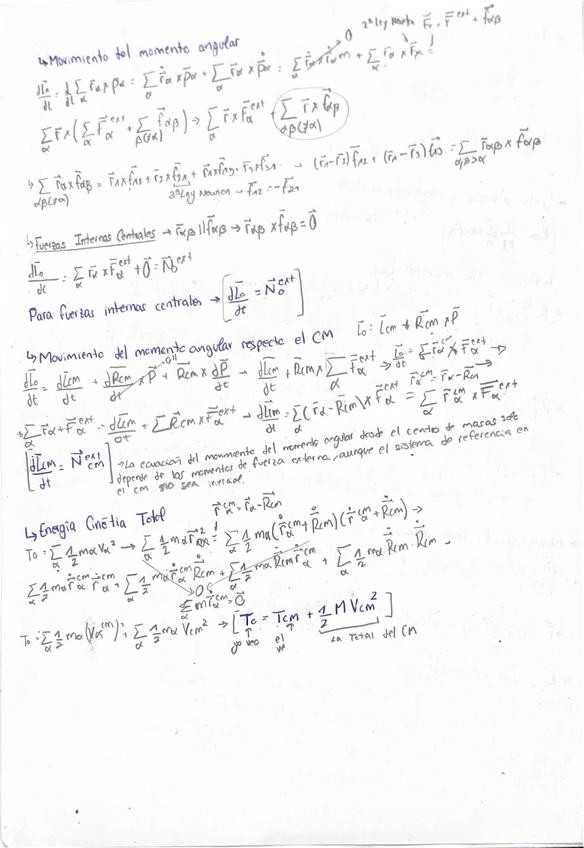 2ª Ley Newton F⃗α = F⃗α^ext + f⃗αβ
↳ Movimiento del momento angular
dL⃗o/dt = d/dt ∑α r⃗α × p⃗α = ∑α ṙ⃗α × p⃗α + ∑α r⃗α × ṗ⃗α = ∑α ṙ⃗α × ṙ⃗α m + ∑α r⃗α × F⃗α =
0
∑α r⃗ × (∑ F⃗α^ext + ∑αβ(≠α) f⃗αβ) → ∑α r⃗ × F⃗α^ext + ∑αβ(≠α) r⃗ × f⃗αβ
↳ ∑αβ(≠α) r⃗α × f⃗αβ = r⃗1 × f⃗12 + r⃗2 × f⃗21 + r⃗1 × f⃗13, r⃗3 × f⃗31 → (r⃗1 - r⃗2) f⃗12 + (r⃗1 - r⃗3) f⃗13 = ∑α,β>α r⃗αβ × f⃗αβ
3ª Ley Newton → f⃗12 = -f⃗21
↳ Fuerzas Internas Centrales → r⃗αβ || f⃗αβ → r⃗αβ × f⃗αβ = 0⃗
dL⃗o/dt = ∑α r⃗α × F⃗α^ext + 0⃗ = N⃗o^ext
Para fuerzas internas centrales → [dL⃗o/dt = N⃗o^ext]
↳ Movimiento del momento angular respecto el CM L⃗o = L⃗cm + R⃗cm × P⃗
dL⃗o/dt = dL⃗cm/dt + dR⃗cm/dt × P⃗ + R⃗cm × dP⃗/dt → dL⃗cm/dt + R⃗cm × ∑α F⃗α^ext → dL⃗o/dt = ∑ r⃗α × F⃗α^ext →
0 ||
r⃗α^cm = r⃗α - R⃗cm
→ ∑α r⃗α + F⃗α^ext = dL⃗cm/dt + ∑ R⃗cm × F⃗α^ext → dL⃗cm/dt = ∑α (r⃗α - R⃗cm) × F⃗α^ext = ∑α r⃗α^cm × F⃗α^ext
[dL⃗cm/dt = N⃗cm^ext] → La ecuación del movimiento del momento angular desde el centro de masas solo
depende de los momentos de fuerza externa, aunque el sistema de referencia en
el cm no sea inercial.
r⃗α^cm = r⃗α - R⃗cm
↳ Energía Cinética Total
To = ∑α 1/2 mα Vα² → ∑α 1/2 mα ṙ⃗α² = ∑α 1/2 mα (ṙ⃗α^cm + Ṙ⃗cm)(ṙ⃗α^cm + Ṙ⃗cm) →
∑α 1/2 mα ṙ⃗α^cm ṙ⃗α^cm + ∑α 1/2 mα ṙ⃗α^cm Ṙ⃗cm + ∑α 1/2 mα Ṙ⃗cm ṙ⃗α^cm + ∑α 1/2 mα Ṙ⃗cm · Ṙ⃗cm
0
∑α m r⃗α^cm = 0⃗
To = ∑α 1/2 mα (Vα^cm)² + ∑α 1/2 mα Vcm² → [To = Tcm + 1/2 M Vcm²]
yo veo el ve La Total del CM